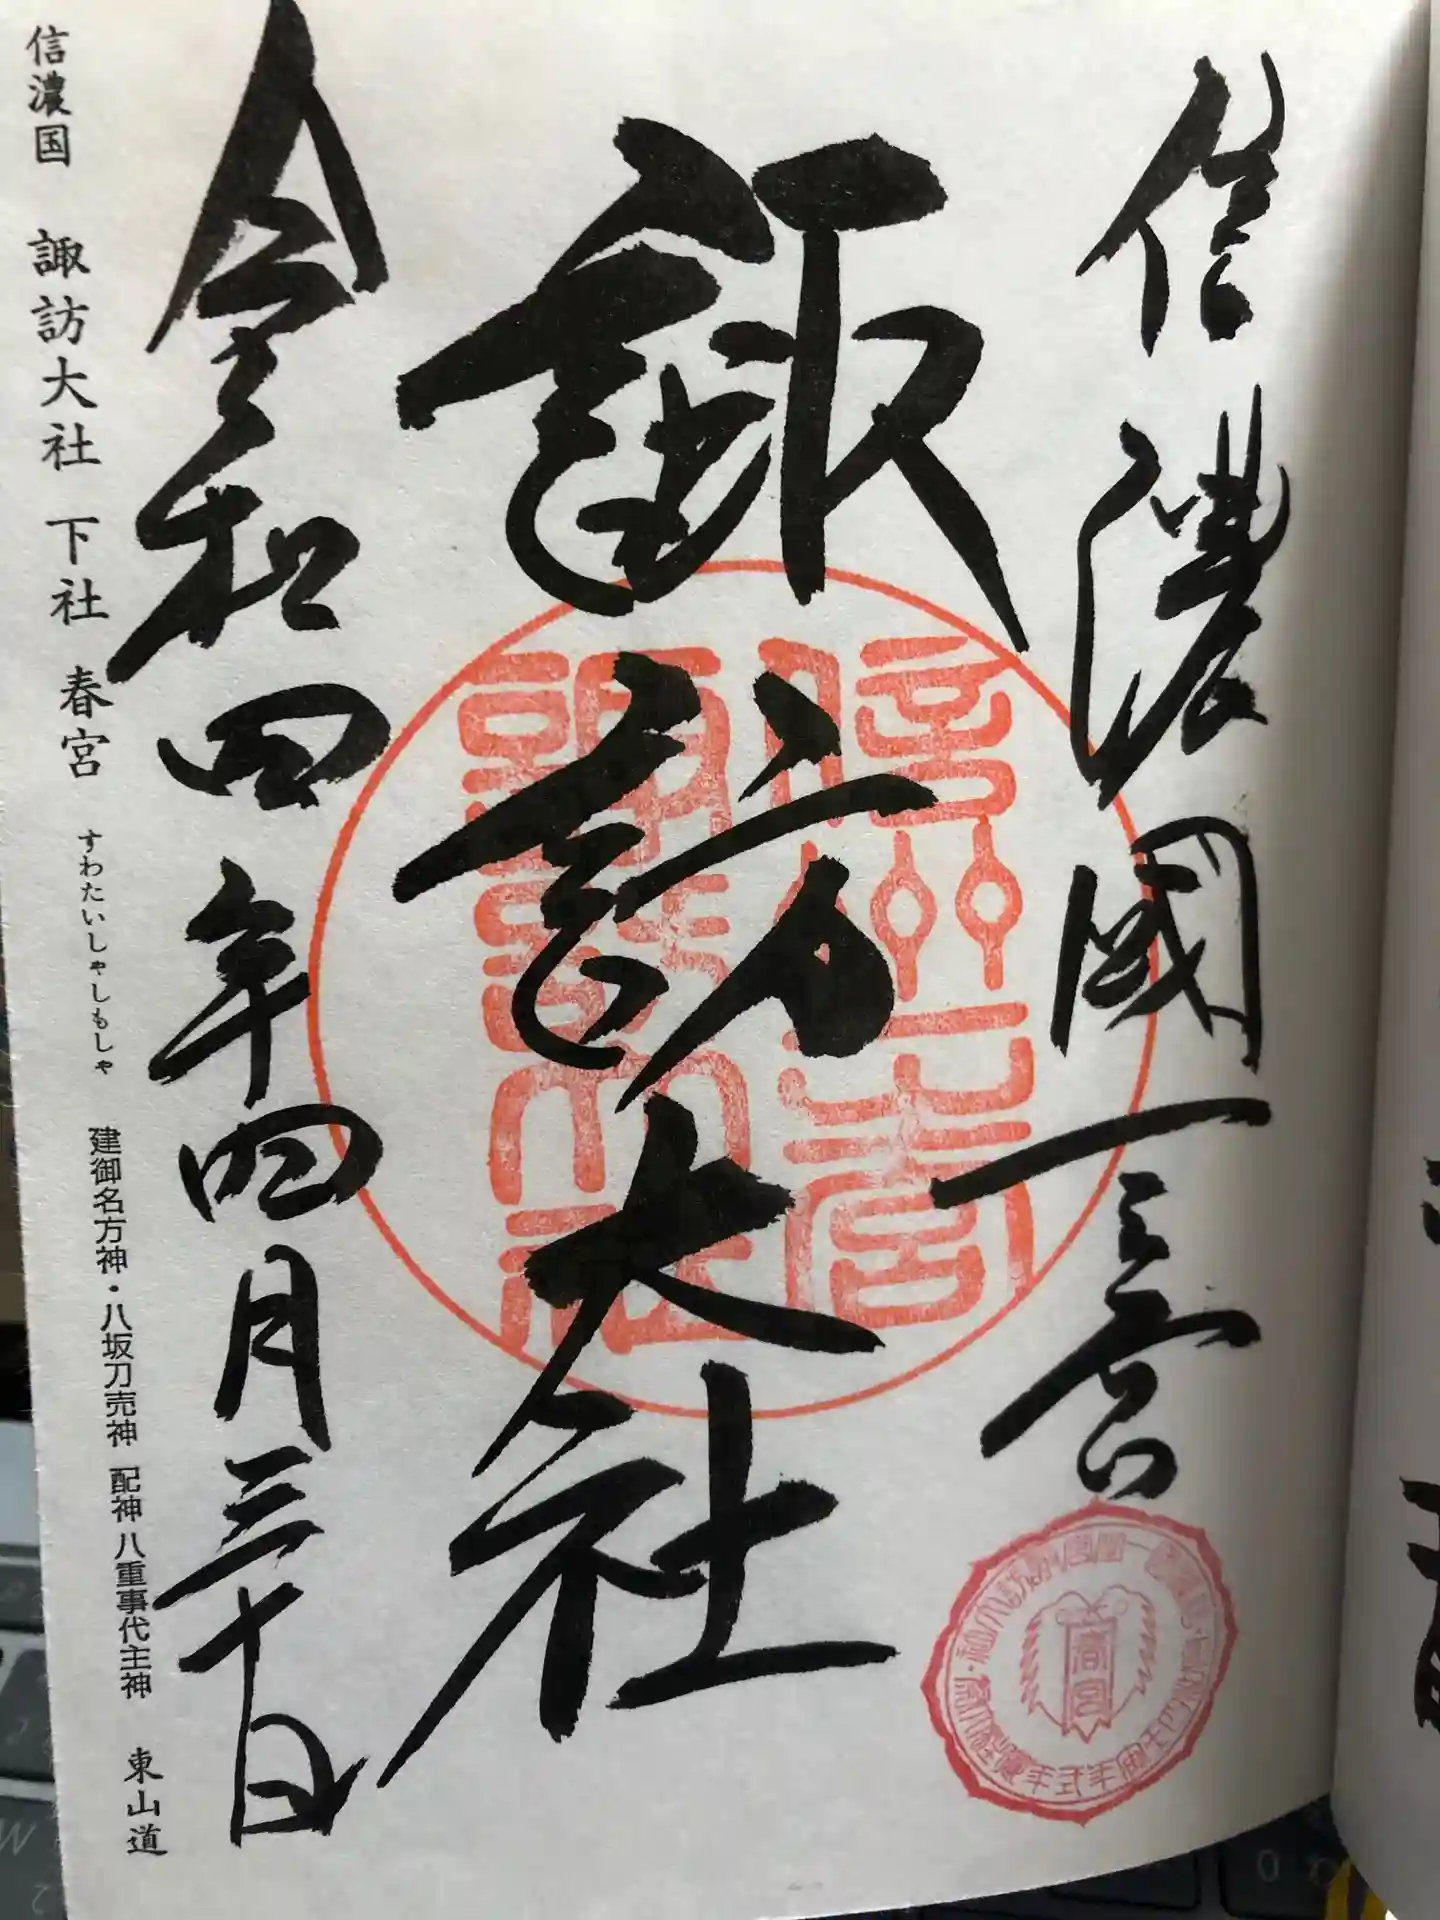 信濃國一之宮
諏訪大社
令和四年四月三十日
信濃国 諏訪大社 下社 春宮 すわたいしゃしもしゃ 建御名方神・八坂刀売神 配神 八重事代主神 東山道
春宮